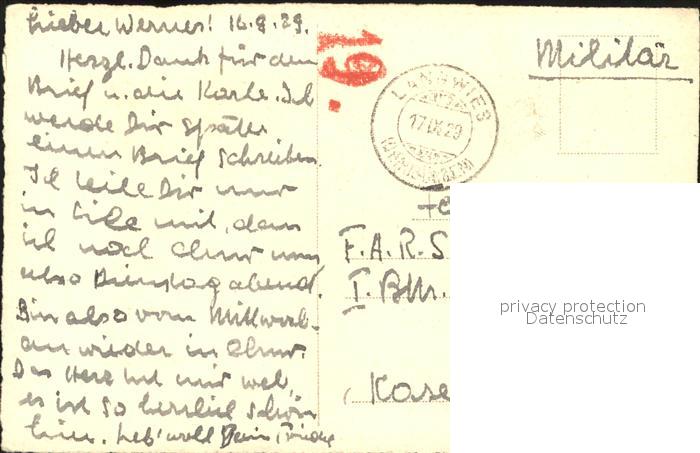 Lieber Werner! 16.9.29.
Herzl. Dank für den
Brief u. die Karte. Ich
werde Dir später
einen Brief schreiben.
Ich teile Dir nur
in Eile mit, dass
ich nach Chur muss
also Dienstag abend.
Bin also vom Mittwoch
an wieder in Chur.
Das Herz tut mir weh,
es ist so herrlich schön
hier. Leb' wohl Dein
19.
LANGWIES
17.IX.29
(GRAUBÜNDEN)
Militär
F.A.R.S
I. Bttr.
Kase
privacy protection
Datenschutz